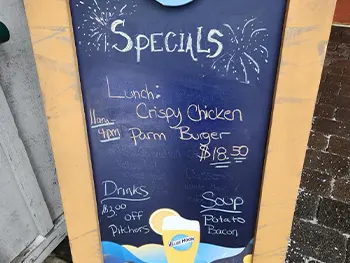 Specials
Lunch:
11am
4pm
Crispy Chicken
Parm Burger
$18.50
Drinks
$2.00
off
Pitchers
Soup
Potato
Bacon
BLUE MOON